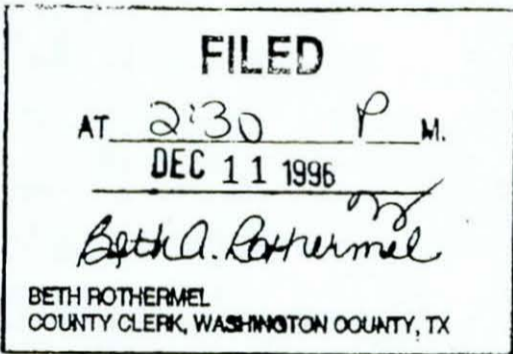 FILED
AT 2:30 P M.
DEC 11 1996
Beth A. Rothermel
BETH ROTHERMEL
COUNTY CLERK, WASHINGTON COUNTY, TX